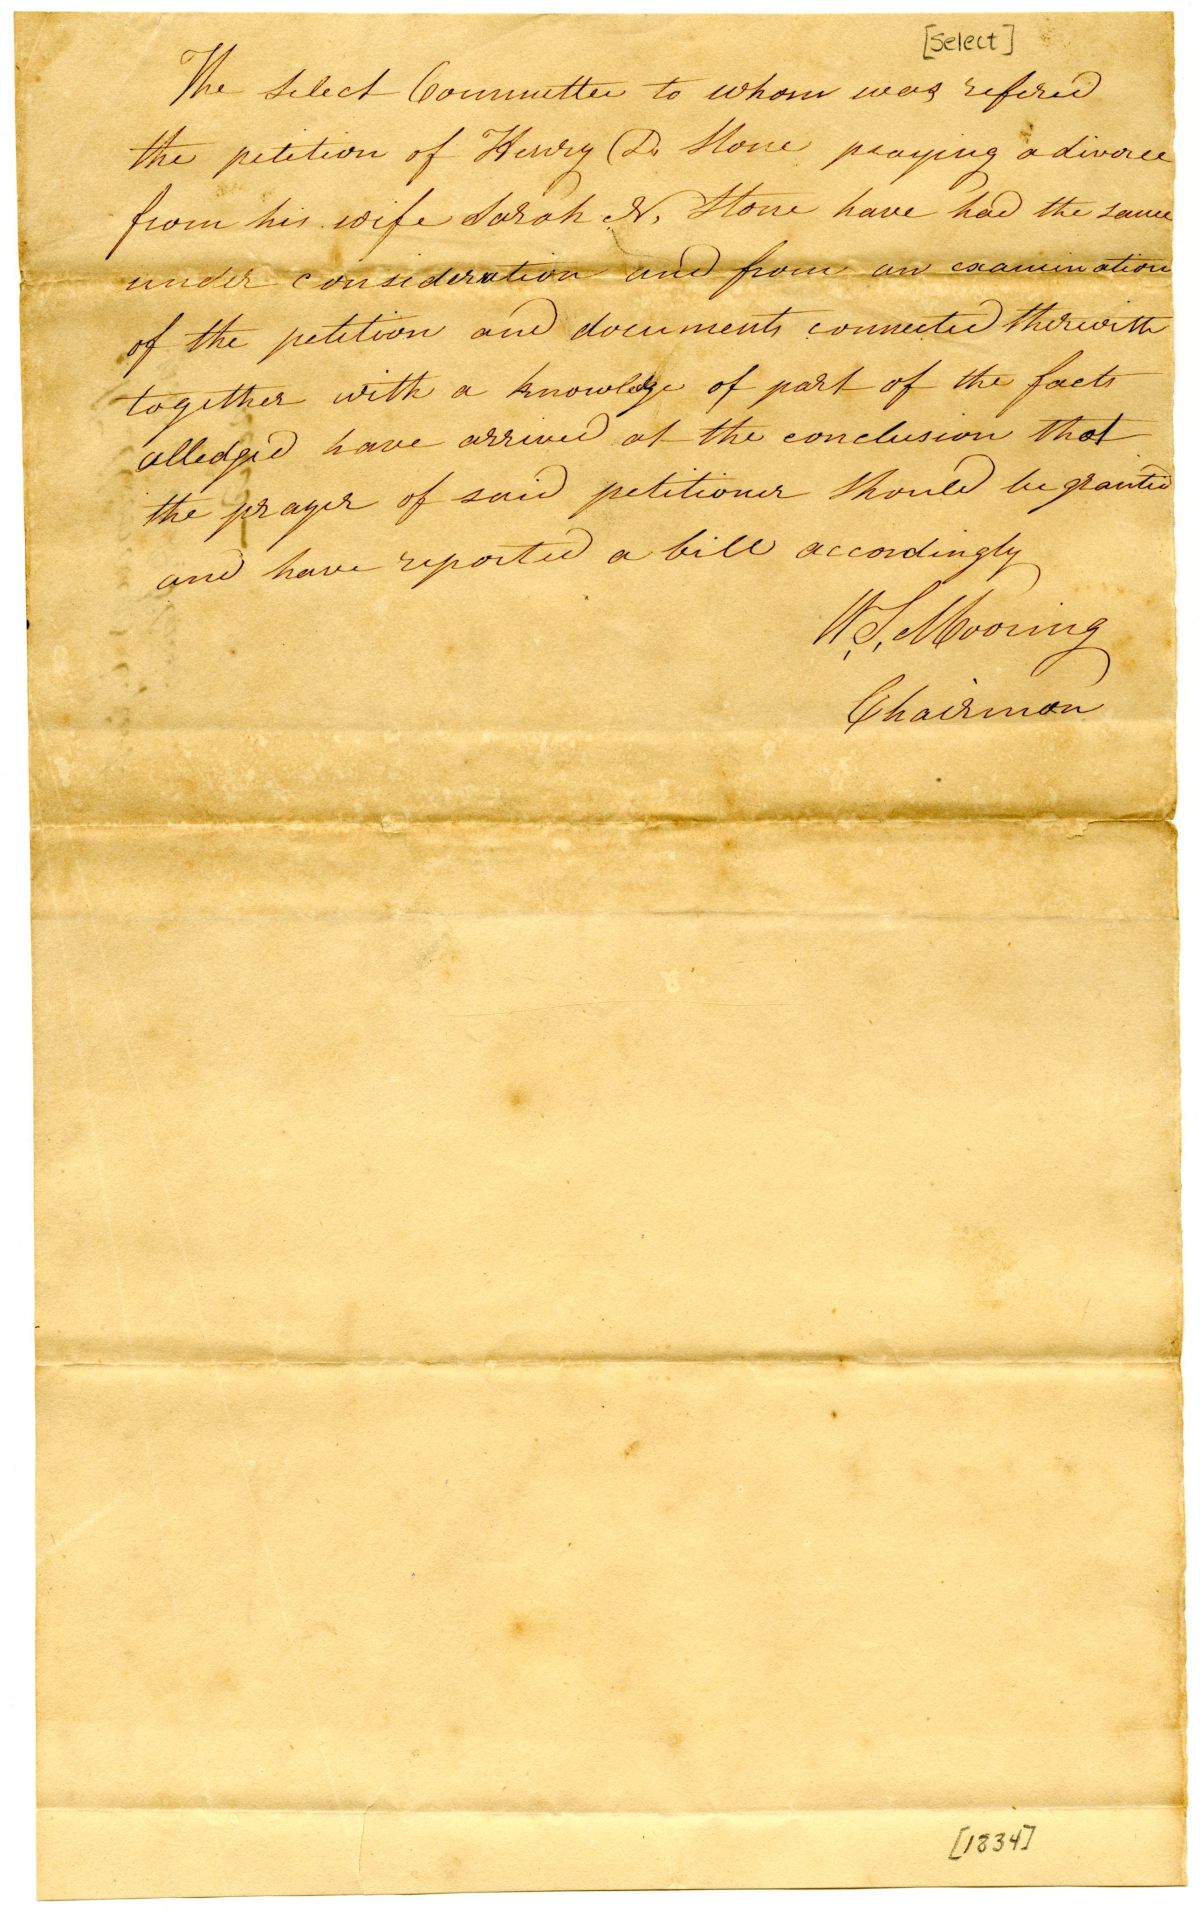 [Select]
The select Committee to whom was refered
the petition of Henry D. Stone praying a divorce
from his wife Sarah N. Stone have had the same
under consideration and from an examination
of the petition and documents connected therewith
together with a knowledge of part of the facts
alledged have arrived at the conclusion that
the prayer of said petitioner should be granted
and have reported a bill accordingly
W. S. Mooring
Chairman
[1834]